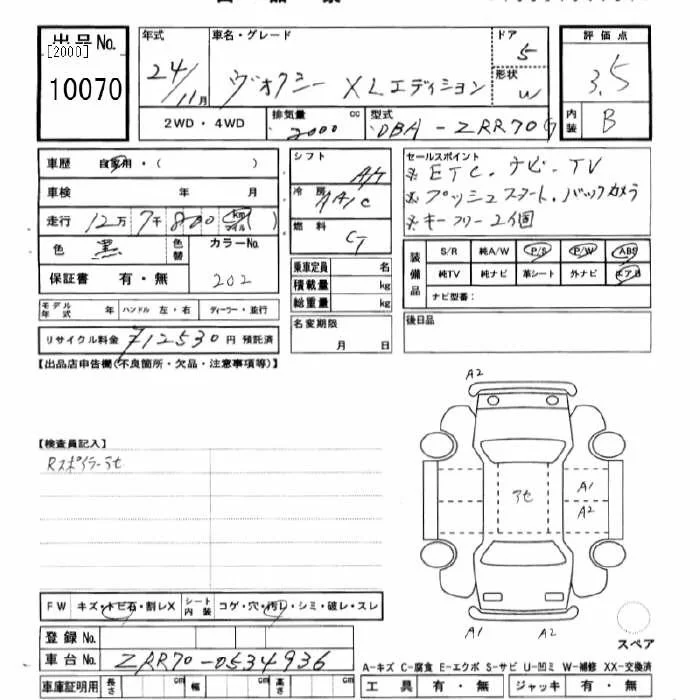 出品No.
[2000]
10070
年式
24/11月
車名・グレード
ヴォクシー XLエディション
ドア
5
形状
W
評価点
3.5
内装
B
2WD・4WD
排気量
2000
cc
型式
DBA-ZRR70G
車歴 自家用・( )
車検 年 月
走行 12万7千800 km マイル
色 黒 色替 カラーNo. 202
保証書 有・無
モデル年式 年 ハンドル 左・右 ディーラー・並行
リサイクル料金 ¥12530 円 預託済
シフト
A/T
冷房
A/C
燃料
G
乗車定員 名
積載量 kg
総重量 kg
名変期限
月 日
セールスポイント
※ETC.ナビ・TV
※プッシュスタート.バックカメラ
※キーフリー2個
装備品
S/R 純A/W P/S P/W ABS
純TV 純ナビ 革シート 外ナビ エアB
ナビ型番:
後日品
【出品店申告欄(不良箇所・欠品・注意事項等)】
【検査員記入】
Rスポイラーアセ
A2
アセ
A1
A2
A1
A2
スペア
FW キズ・トビ石・割レX シート内装 コゲ・穴・汚レ・シミ・破レ・スレ
登録No.
車台No. ZRR70-0534936
車庫証明用 長さ cm 幅 cm 高さ cm
A-キズ C-腐食 E-エクボ S-サビ U-凹ミ W-補修 XX-交換済
工具 有・無 ジャッキ 有・無